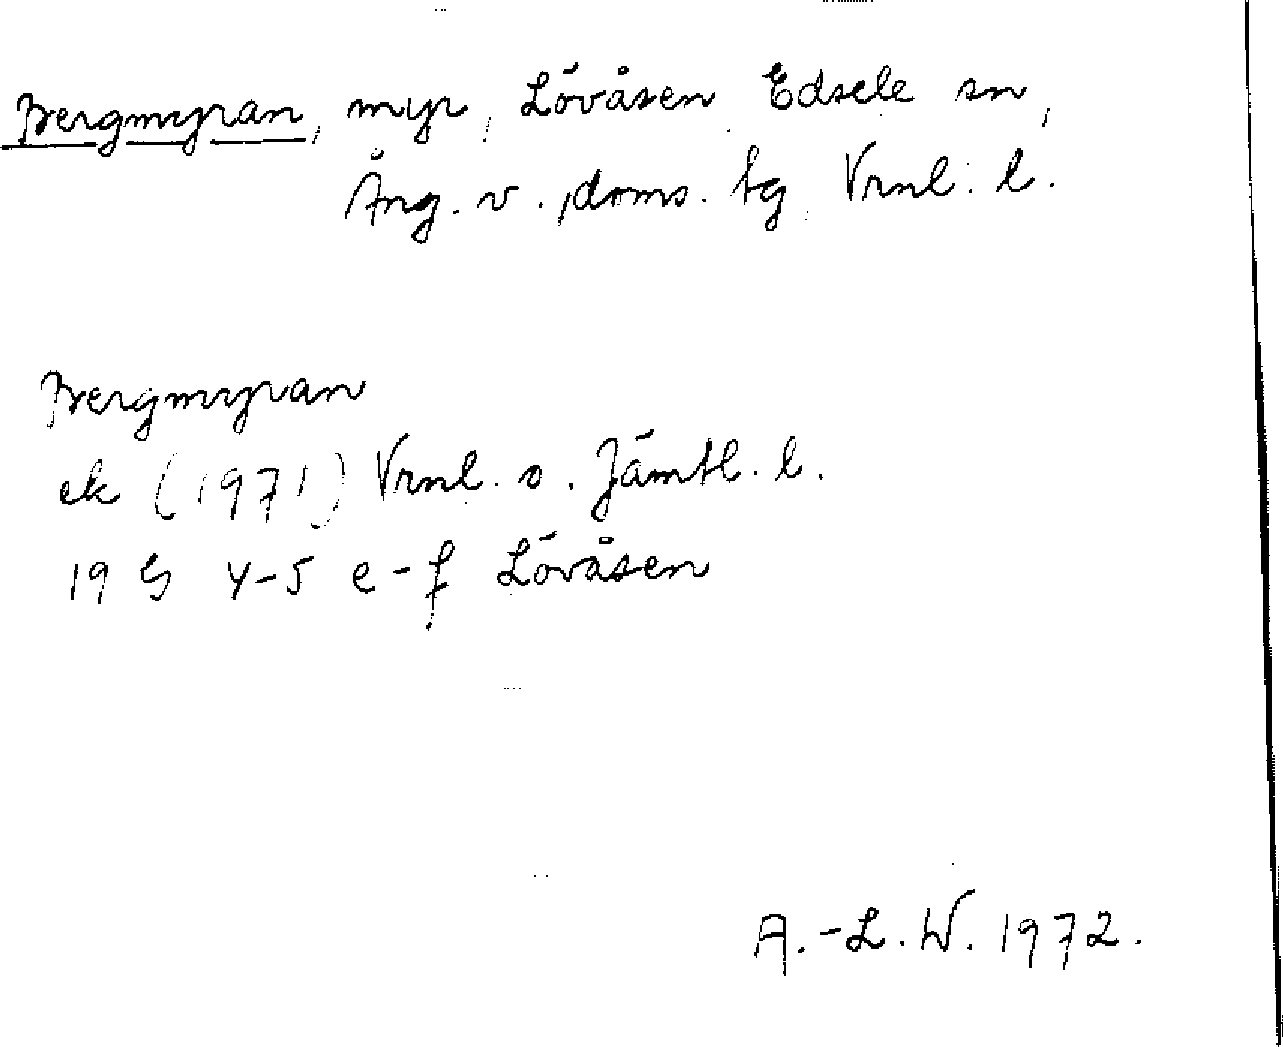 Bergmyran, myr, Lövåsen Edsele sn,
Ång. v. doms. tg Vrnl. l.
Bergmyran
ek (1971) Vrnl. o. Jämtl. l.
19 G 4-5 e-f Lövåsen
A.-L.W. 1972.